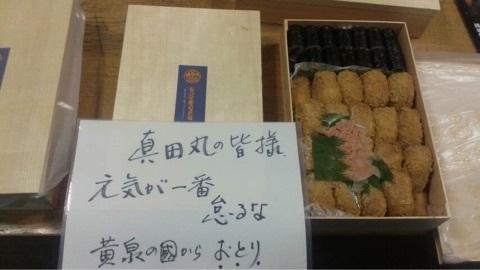 真田丸の皆様
元気が一番
怠るな
黄泉の國から おとり